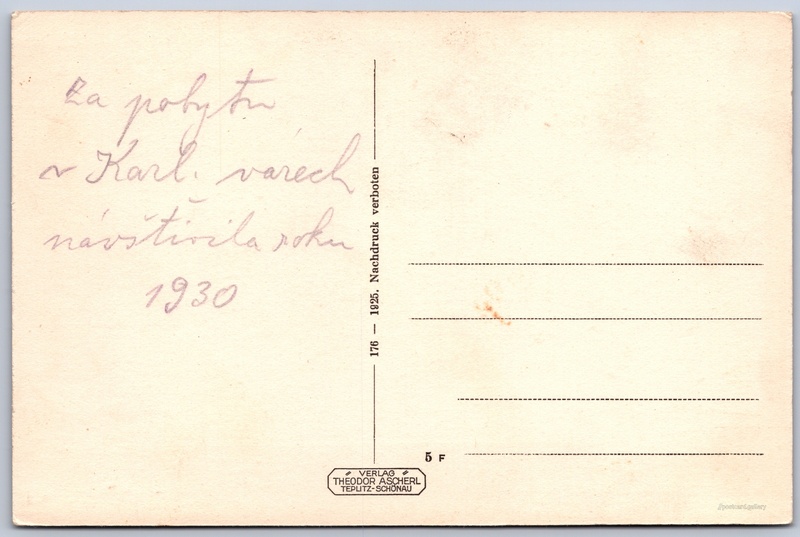 Za pobytu
v Karl. varech
návštívila roku
1930
176 — 1925. Nachdruck verboten
5 F
VERLAG
THEODOR ASCHERL
TEPLITZ-SCHÖNAU